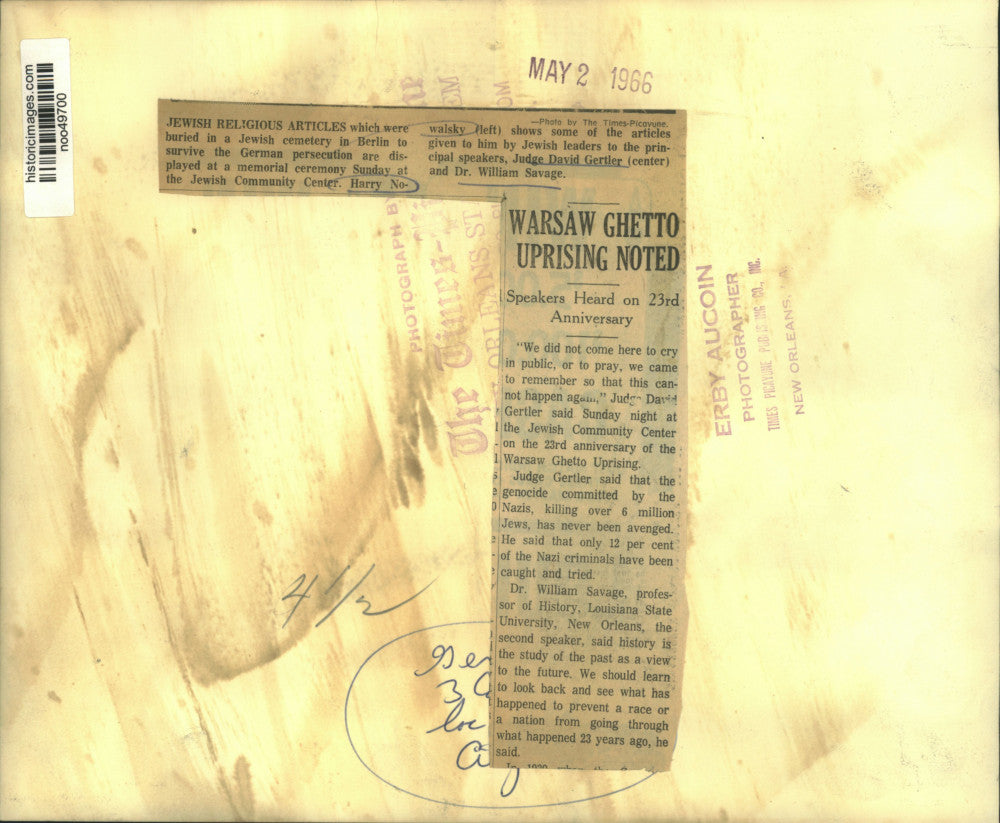 historicimages.com
noo49700
MAY 2 1966
JEWISH RELIGIOUS ARTICLES which were
buried in a Jewish cemetery in Berlin to
survive the German persecution are dis-
played at a memorial ceremony Sunday at
the Jewish Community Center. Harry No-
—Photo by The Times-Picayune.
walsky (left) shows some of the articles
given to him by Jewish leaders to the prin-
cipal speakers, Judge David Gertler (center)
and Dr. William Savage.
WARSAW GHETTO
UPRISING NOTED
Speakers Heard on 23rd
Anniversary
"We did not come here to cry
in public, or to pray, we came
to remember so that this can-
not happen again," Judge David
Gertler said Sunday night at
the Jewish Community Center
on the 23rd anniversary of the
Warsaw Ghetto Uprising.
Judge Gertler said that the
genocide committed by the
Nazis, killing over 6 million
Jews, has never been avenged.
He said that only 12 per cent
of the Nazi criminals have been
caught and tried.
Dr. William Savage, profes-
sor of History, Louisiana State
University, New Orleans, the
second speaker, said history is
the study of the past as a view
to the future. We should learn
to look back and see what has
happened to prevent a race or
a nation from going through
what happened 23 years ago, he
said.
PHOTOGRAPH B
The Times-
ORLEANS ST
ERBY AUCOIN
PHOTOGRAPHER
TIMES PICAYUNE PUBLISHING CO., INC.
NEW ORLEANS,
4 1/2